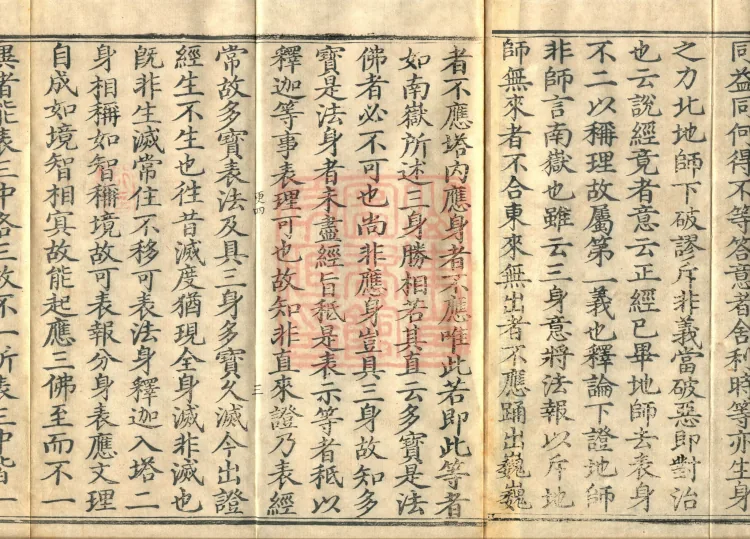 同益同何得不等答意者舍利時等亦生身
之力北地師下破謬斥非義當破惡即對治
也云說經竟者意云正經已畢地師去表身
不二以稱理故屬第一義也釋論下證地師
非師言南嶽也雖云三身意將法報以斥地
師無來者不合東來無出者不應踊出巍巍
者不應塔內應身者不應唯此若即此等者
如南嶽所述三身勝相若其直云多寶是法
佛者必不可也尚非應身豈具三身故知多
寶是法身者未盡經旨秖是表示等者秖以
釋迦等事表理可也故知非直來證乃表經
更四
三
常故多寶表法及具三身多寶久滅今出證
經生不生也往昔滅度猶現全身滅非滅也
既非生滅常住不移可表法身釋迦入塔二
身相稱如智稱境故可表報分身表應文理
自成如境智相冥故能起應三佛至而不一
異者能表三中各三故不一所表三中皆一